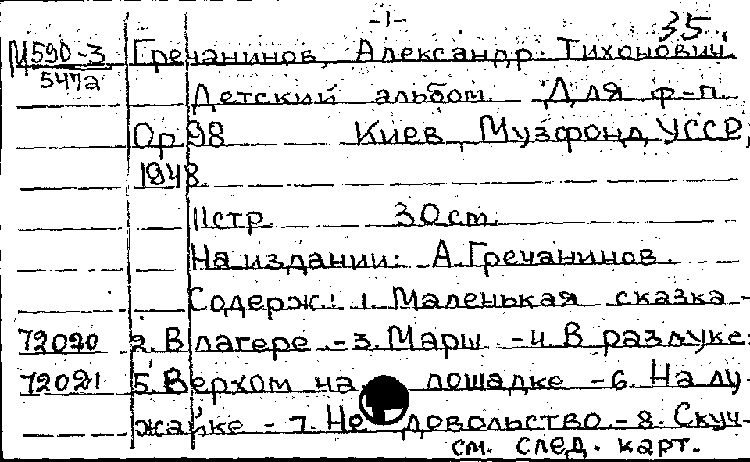 -1- 35
М590-3 Гречанинов, Александр Тихонович.
547а
Детский альбом. Для ф-п.
Ор 98 Киев, Музфонд УССР,
1948.
11стр. 30cm.
На издании: А.Гречанинов.
Содерж.: 1. Маленькая сказка -
72020 2. В лагере -3. Марш -4. В разлуке-
72021 5. Верхом на лошадке -6. На лу-
жайке -7. Недовольство. -8. Скуч-
см. след. карт.